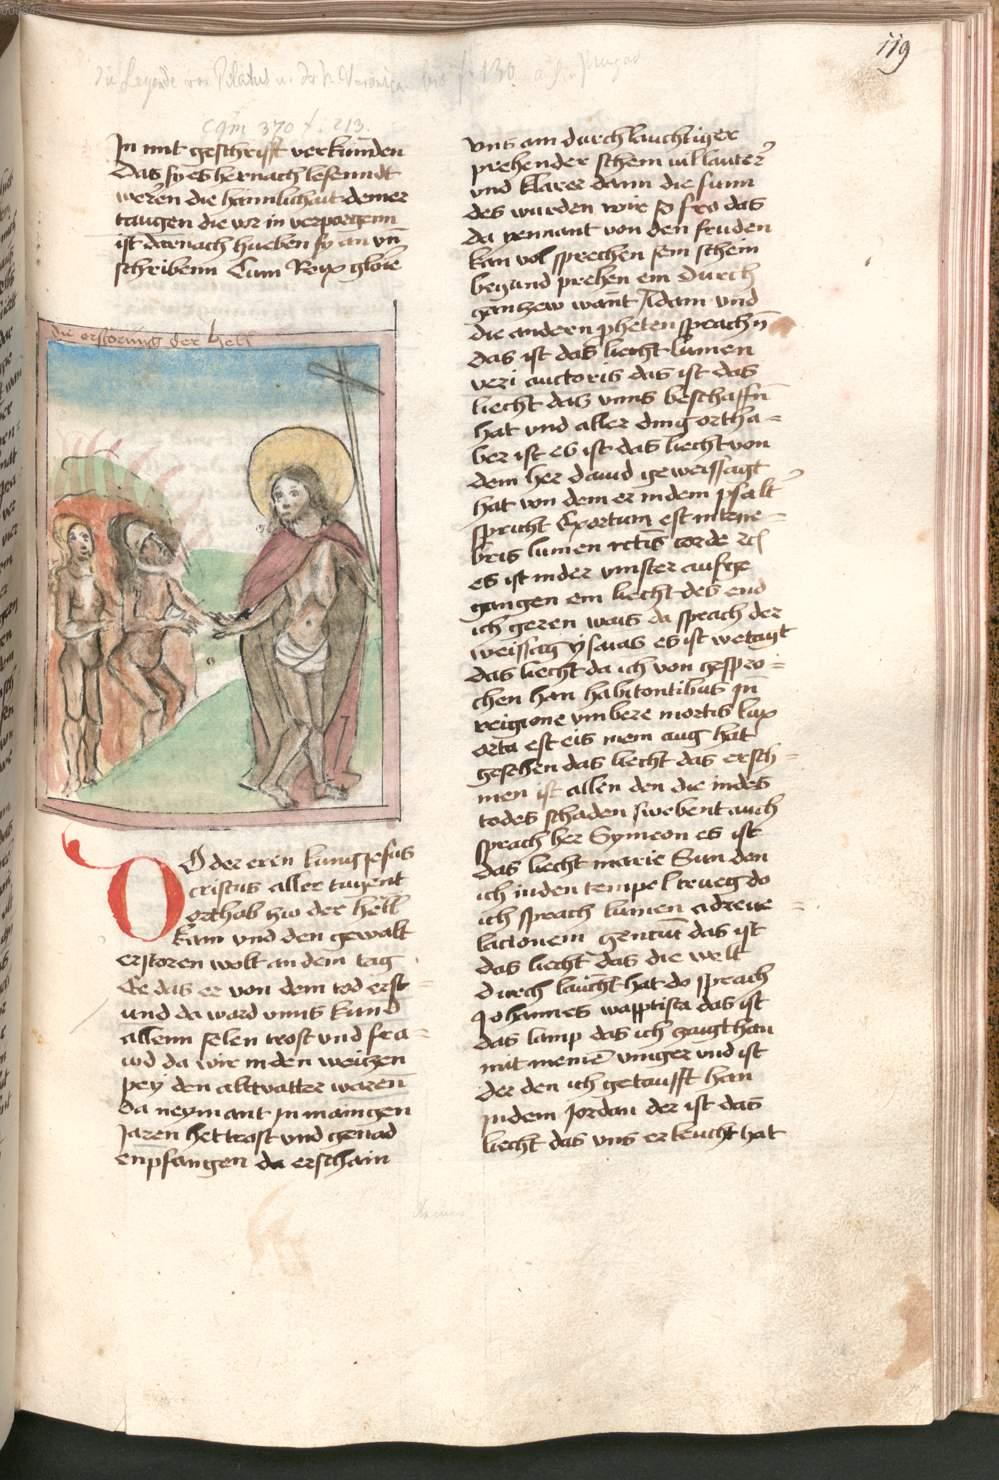 119
die Legende von Pilatus u. der h. Veronica bis f. 130
cgm 370 f. 213.
In mit geschrifft verkunden
Das sy es hernach lesenndt
weren die haimlichait deiner
taugen die vor in verporgenn
ist darnach hueben sy an vn̄
schribenn Cum Rex glorie
die erstorung der hell
DO der eren kunig jesus
cristus aller tugent
orthab zw der hell
kam vnd den gewalt
erstoren wolt an dem tag
Ee das er von dem tod erst=
vnd da ward vnns kund
allenn selen trost vnd fra=
wd da wir in den weitzen
pey den altvatter waren
da neymant jn maingen
Jaren het trost vnd genad
enpfangen da erschain
vns ain durchleuchtiger
prehender schein vil lauter
vnd klarer dann die sunn
des wurden wir so fro das
da nennant von den freuden
kan vol sprechen sein schein
begund prehen ein durch
gantzew want Adam vnd
die andern pheten sprachn̄
das ist das liecht lumen
veri auctoris das ist das
liecht daz vnns beschaffn̄
hat vnd aller ding ortha=
ber ist es ist das liecht von
dem her dauid geweissagt
hat von dem er in dem psalt
spricht Exortum est in tene=
bris lumen rctis corde
es ist in der vinster aufge
gangen ein liecht des end
ich geren wais da sprach der
weissag ysaias es ist
das liecht da ich von gespro=
chen han habitontibus in
reigione vmbere mortis lux
orta est eis mein aug hat
gesehen das liecht das ersch=
inen ist allen den die in des
todes schaden swebent auch
sprach her Symeon es ist
das liecht marie Sun den
ich in den tempel trueg do
ich sprach lumen ad reue=
lacionem genciu̅ das ist
das liecht das die welt
durch laucht hat do sprach
Johannes wapptista das ist
das lamp das ich zaigt han
mit meine̅ vinger vnd ist
der den ich getaufft han
in dem Jordan der ist das
liecht das vns erleucht hat